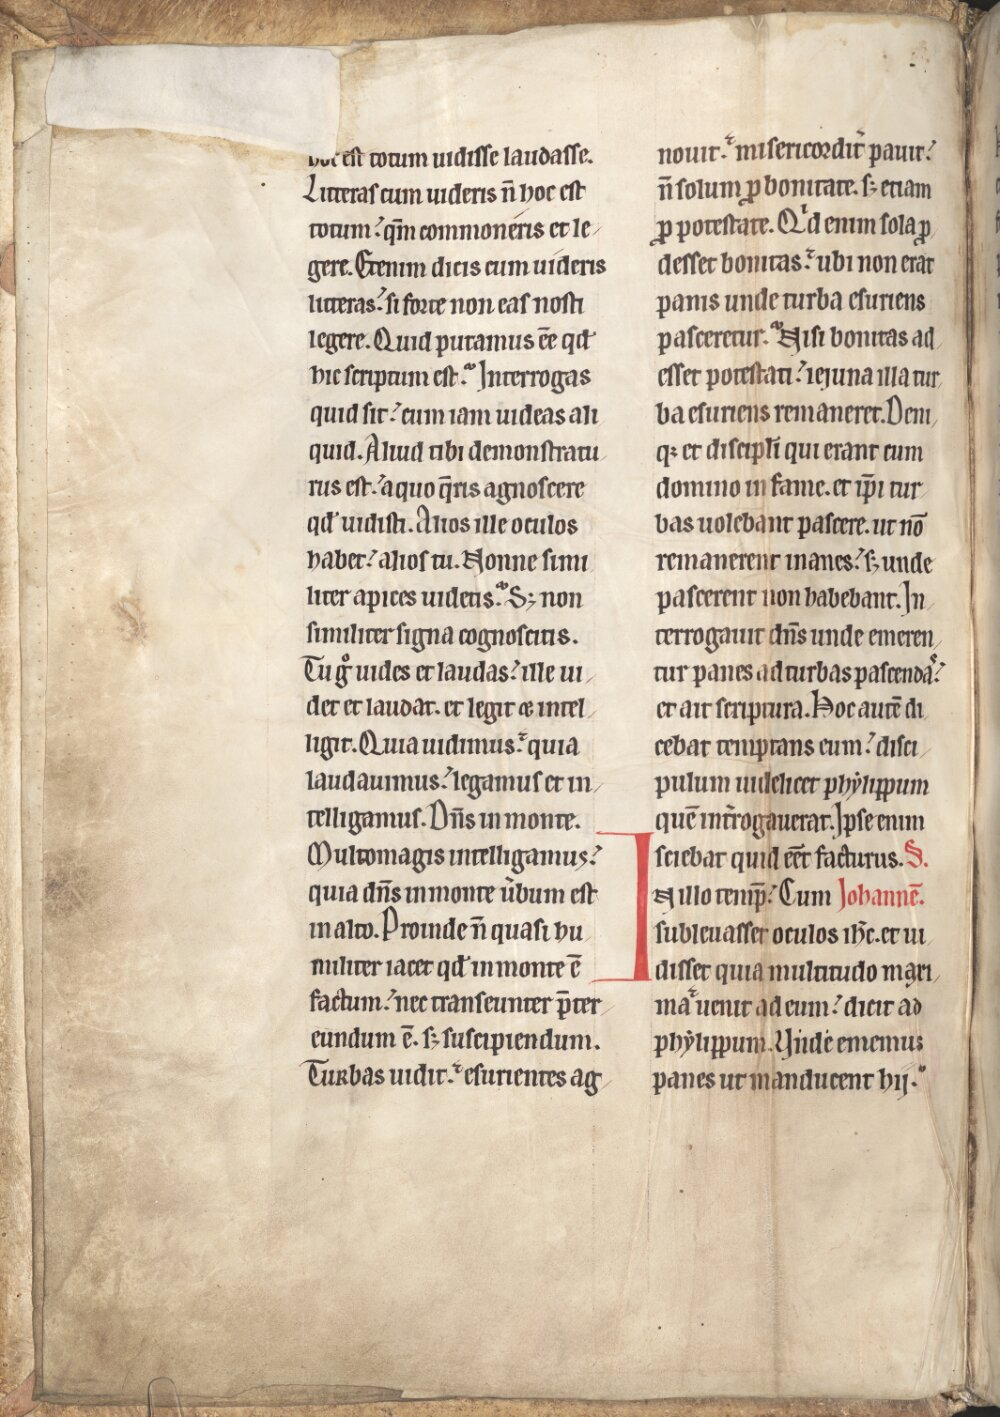 hoc est totum uidisse laudasse.
Litteras cum uideris n̄ hoc est
totum? qm̄ commoneris et le
gere. Etenim dicis cum uideris
litteras? si forte non eas nosti
legere. Quid putamus ēe qđ
hic scriptum est? Interrogas
quid sit? cum iam uideas ali
quid. Aliud tibi demonstratu
rus est? a quo q̄ris agnoscere
qđ uidisti. Alios ille oculos
habet? alios tu. Nonne simi
liter apices uidetis? S; non
similiter signa cognoscitis.
Tu gͦ uides et laudas? ille ui
det et laudat. et legit et intel
ligit. Quia uidimus? quia
laudauimus? legamus et in
telligamus. Dn̄s in monte.
Multomagis intelligamus?
quia dn̄s in monte ūbum est
in alto. Proinde n̄ quasi hu
militer iacet qđ in monte ē
factum? nec transeunter p̄ter
eundum ē. s; suscipiendum.
Turbas uidit? esurientes ag
nouit? misericordit̉ pauit?
n̄ solum ꝓ bonitate. s; etiam
ꝓ potestate. Qͥd enim sola ꝓ
desset bonitas? ubi non erat
panis unde turba esuriens
pasceretur? Nisi bonitas ad
esset potestati? ieiuna illa tur
ba esuriens remaneret. Deni
q; et discipl̄i qui erant cum
domino in fame. et ip̄i tur
bas uolebant pascere. ut nō
remanerent inanes? s; unde
pascerent non habebant. In
terrogauit dn̄s unde emeren
tur panes ad turbas pascendas?
et ait scriptura. Hoc autē di
cebat temptans eum? disci
pulum uidelicet phẏlippum
quē int̉rogauerat. Ipse enim
sciebat quid eēt facturus. S.
IN illo temp̄? Cum Iohannē.
subleuasset oculos ih̄c. et ui
disset quia multitudo maxi
ma uenit ad eum? dicit ad
phẏlippum. Unde ememus
panes ut manducent hij?